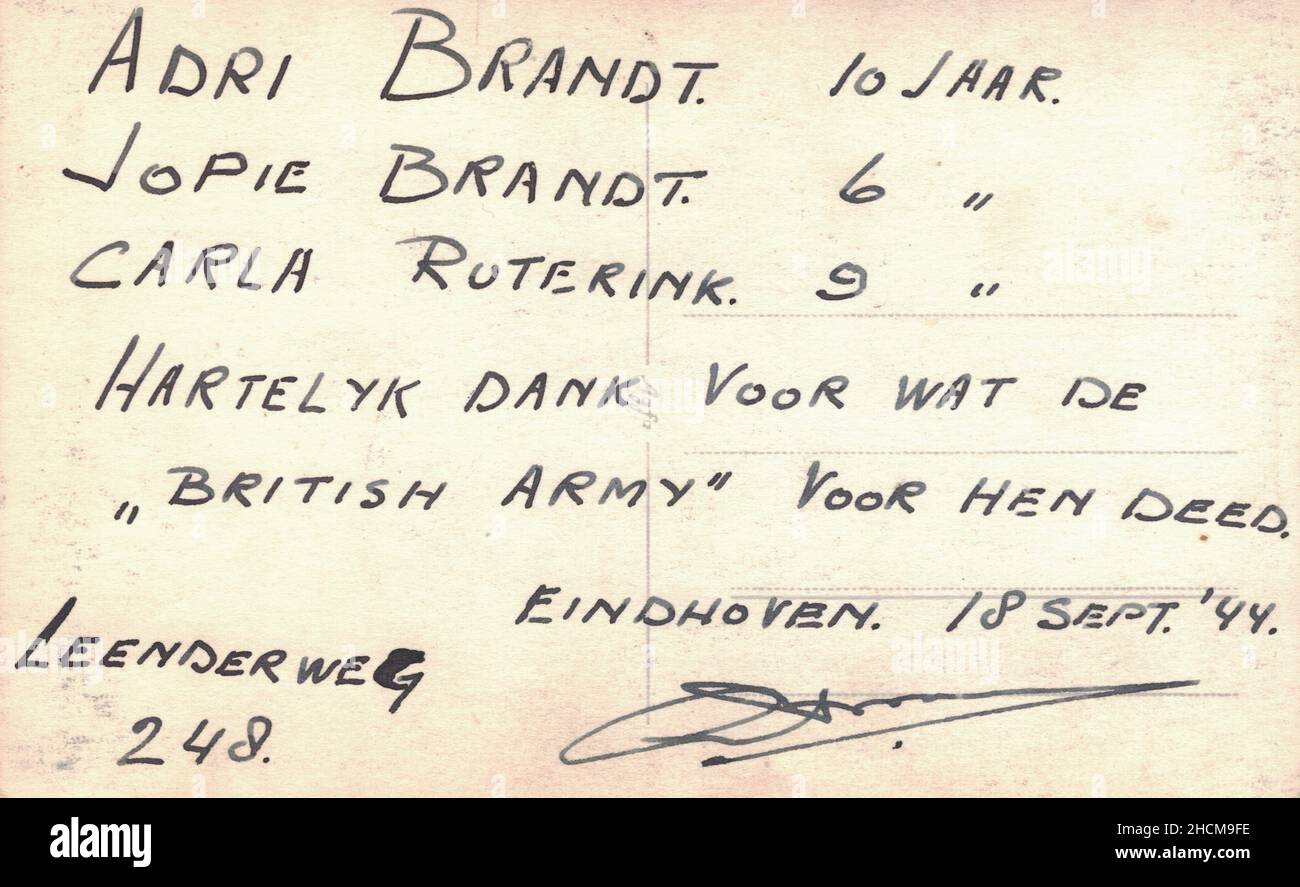 ADRI BRANDT. 10 JAAR.
JOPIE BRANDT. 6 „
CARLA RUTERINK. 9 „
HARTELYK DANK VOOR WAT DE
„BRITISH ARMY” VOOR HEN DEED.
EINDHOVEN. 18 SEPT. '44.
LEENDERWEG
248.
alamy
Image ID: 2HCM9FE
www.alamy.com